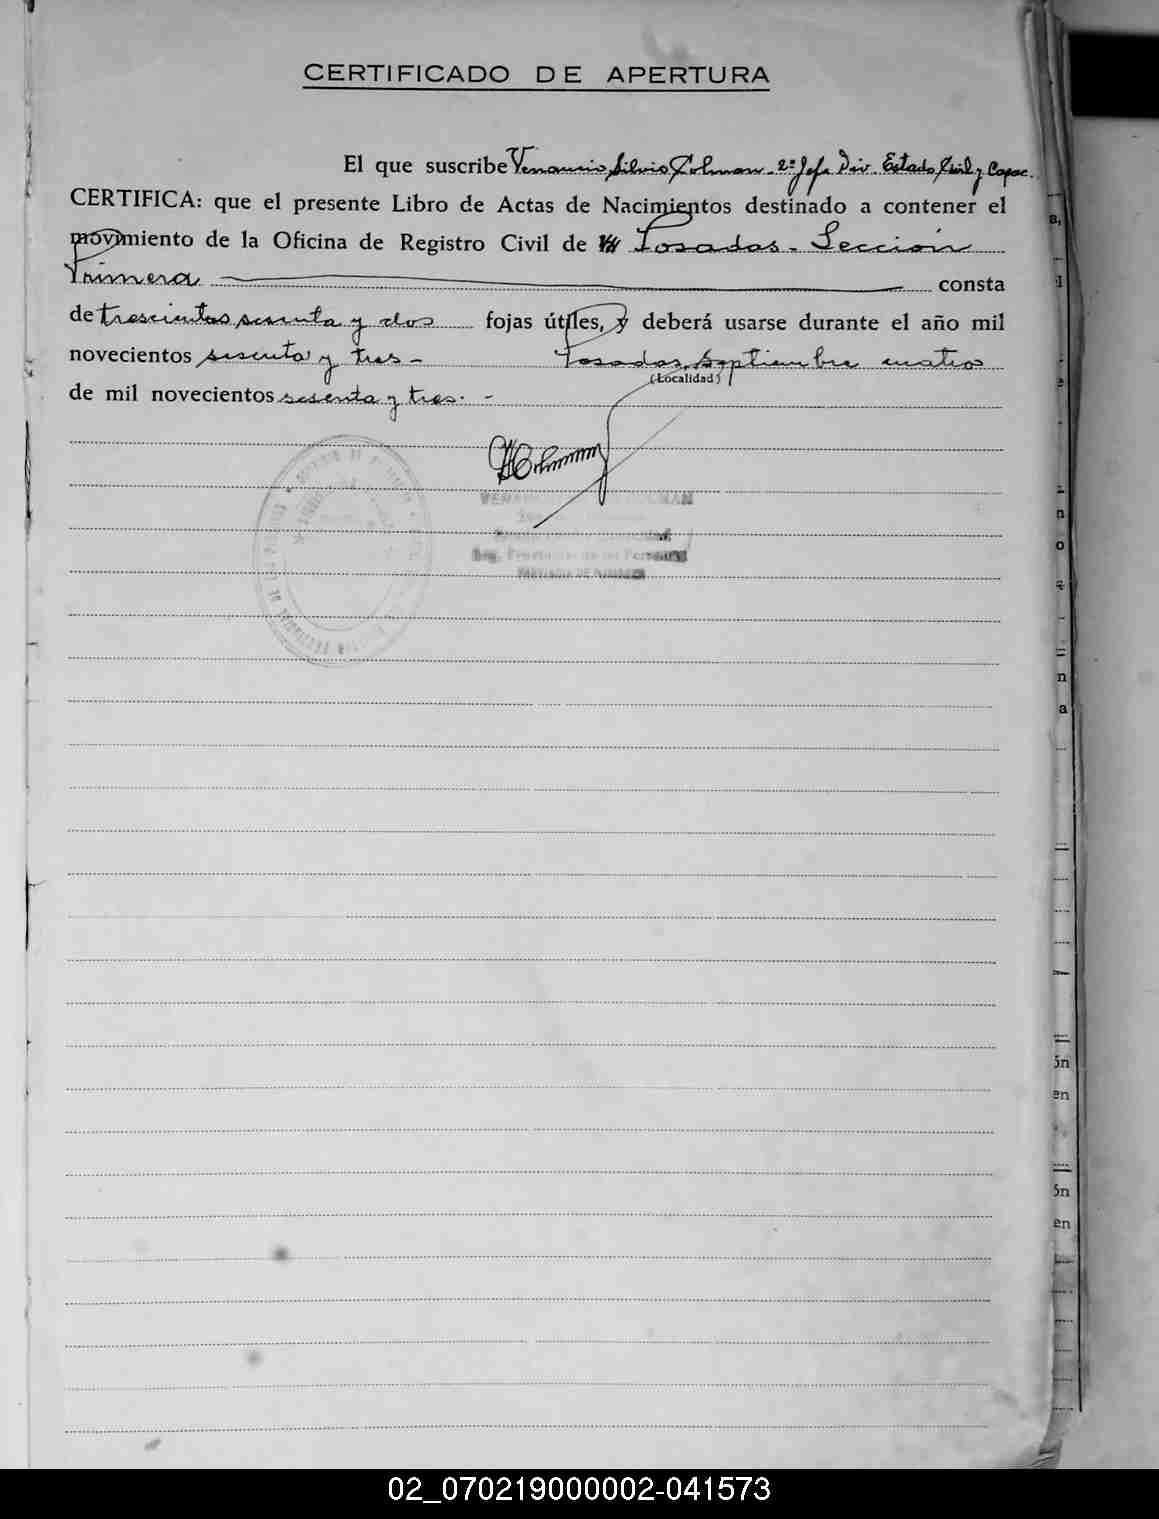 CERTIFICADO DE APERTURA
El que suscribe Venancio Silvio Colman - 2º Jefe Div. Estado Civil y Capac.
CERTIFICA: que el presente Libro de Actas de Nacimientos destinado a contener el
movimiento de la Oficina de Registro Civil de Posadas - Sección
Primera consta
de trescientos sesenta y dos fojas útiles, y deberá usarse durante el año mil
novecientos sesenta y tres - Posadas, Septiembre cuatro
(Localidad)
de mil novecientos sesenta y tres. -
COLMAN
02_070219000002-041573